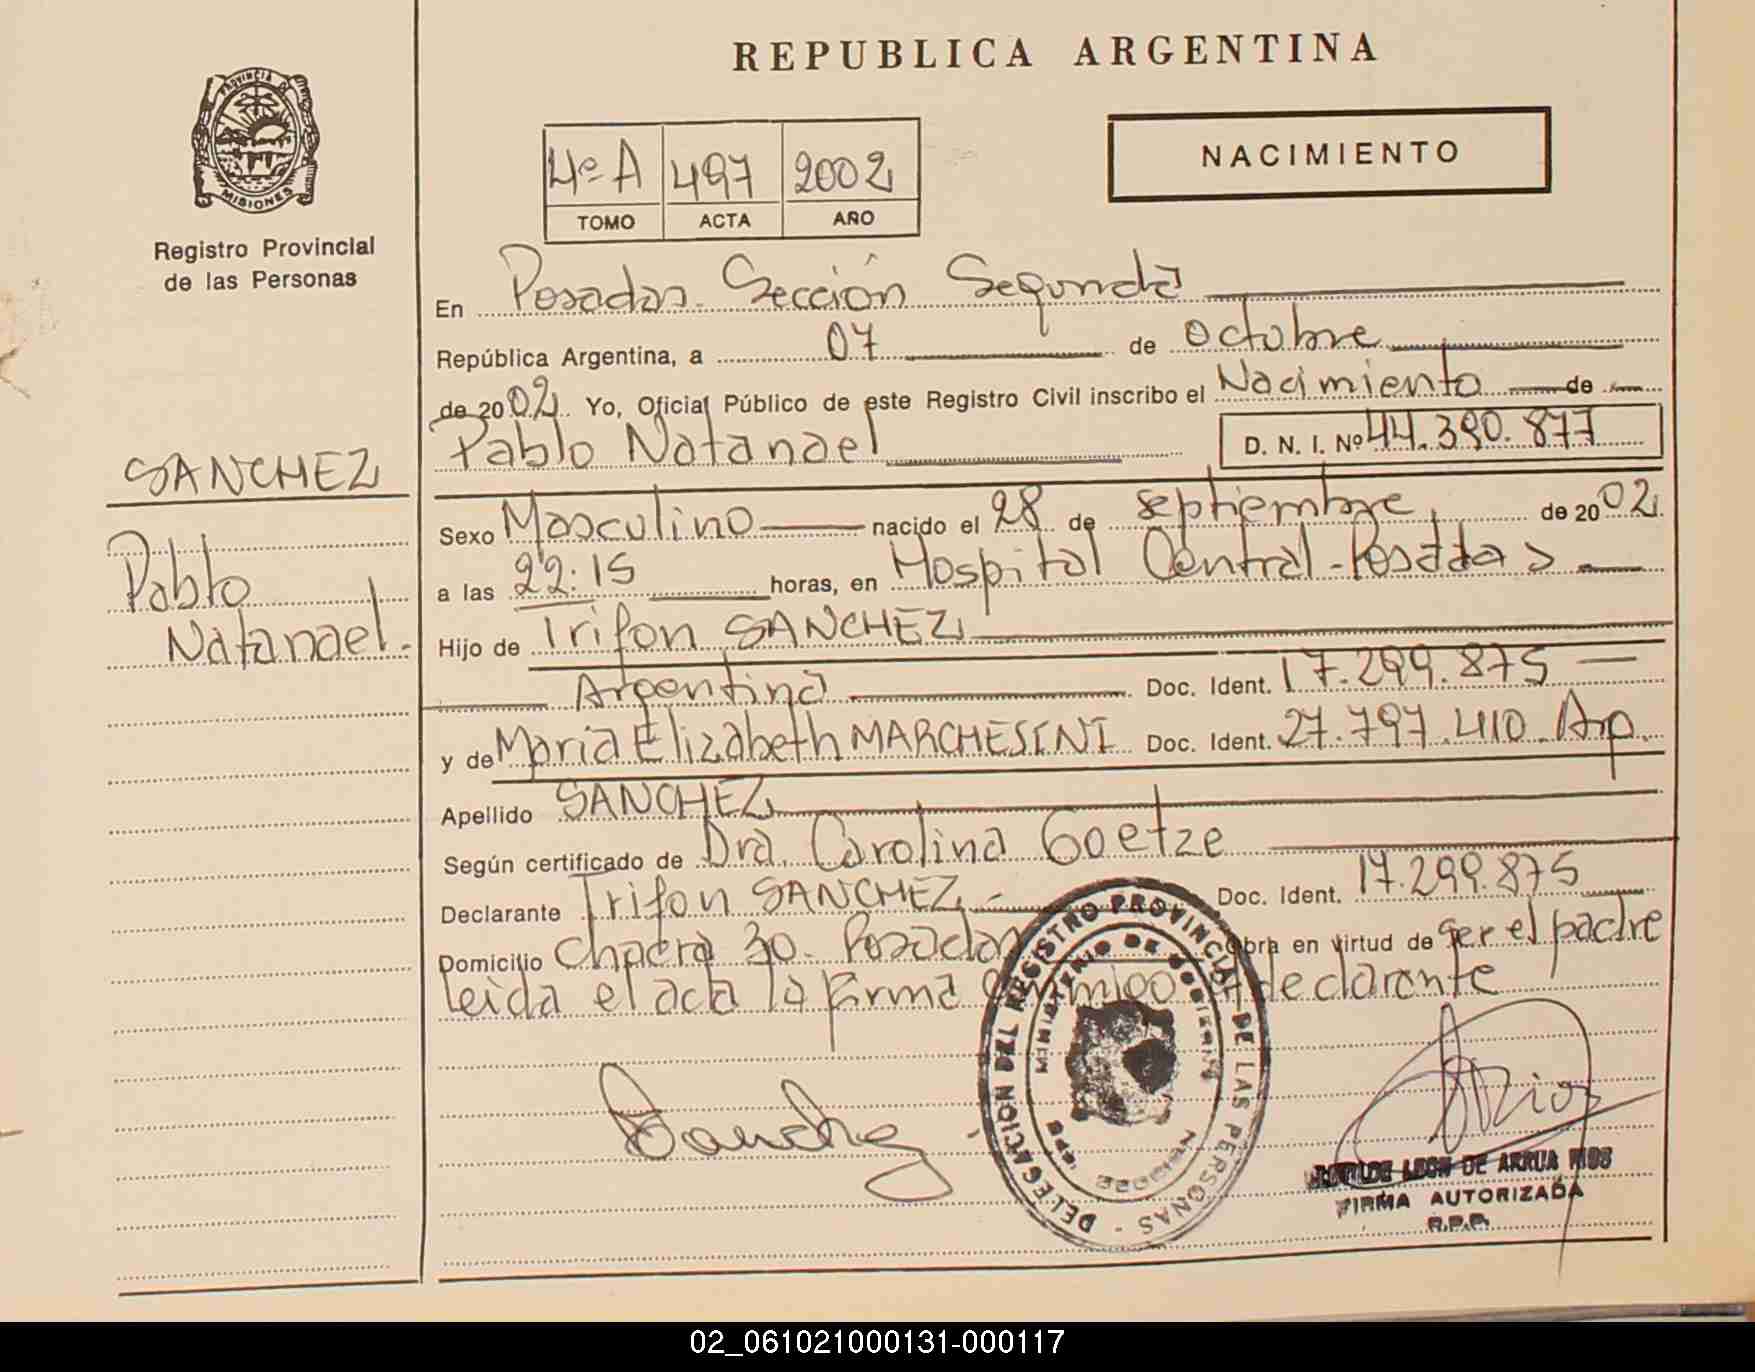 REPUBLICA ARGENTINA
PROVINCIA DE
MISIONES
Registro Provincial
de las Personas
NACIMIENTO
4º A 497 2002
TOMO ACTA AÑO
En Posadas. Sección Segunda
República Argentina, a 07 de octubre
de 2002. Yo, Oficial Público de este Registro Civil inscribo el Nacimiento de
Pablo Natanael D. N. I. Nº 44.390.877
SANCHEZ
Pablo
Natanael.-
Sexo Masculino nacido el 28 de septiembre de 2002
a las 22:15 horas, en Hospital Central-Posadas
Hijo de Trifon SANCHEZ
Argentina Doc. Ident. 17.299.875
y de Maria Elizabeth MARCHESINI Doc. Ident. 27.797.410. Arg.
Apellido SANCHEZ
Según certificado de Dra. Carolina Goetze
Declarante Trifon SANCHEZ.- Doc. Ident. 17.299.875
Domicilio Chacra 30. Posadas Obra en virtud de ser el padre
leida el acta la firma conmigo el declarante
Sanchez
DELEGACION DEL REGISTRO PROVINCIAL DE LAS PERSONAS -
MINISTERIO DE GOBIERNO
LEON DE ARRUA RIOS
FIRMA AUTORIZADA
R.P.P.
02_061021000131-000117